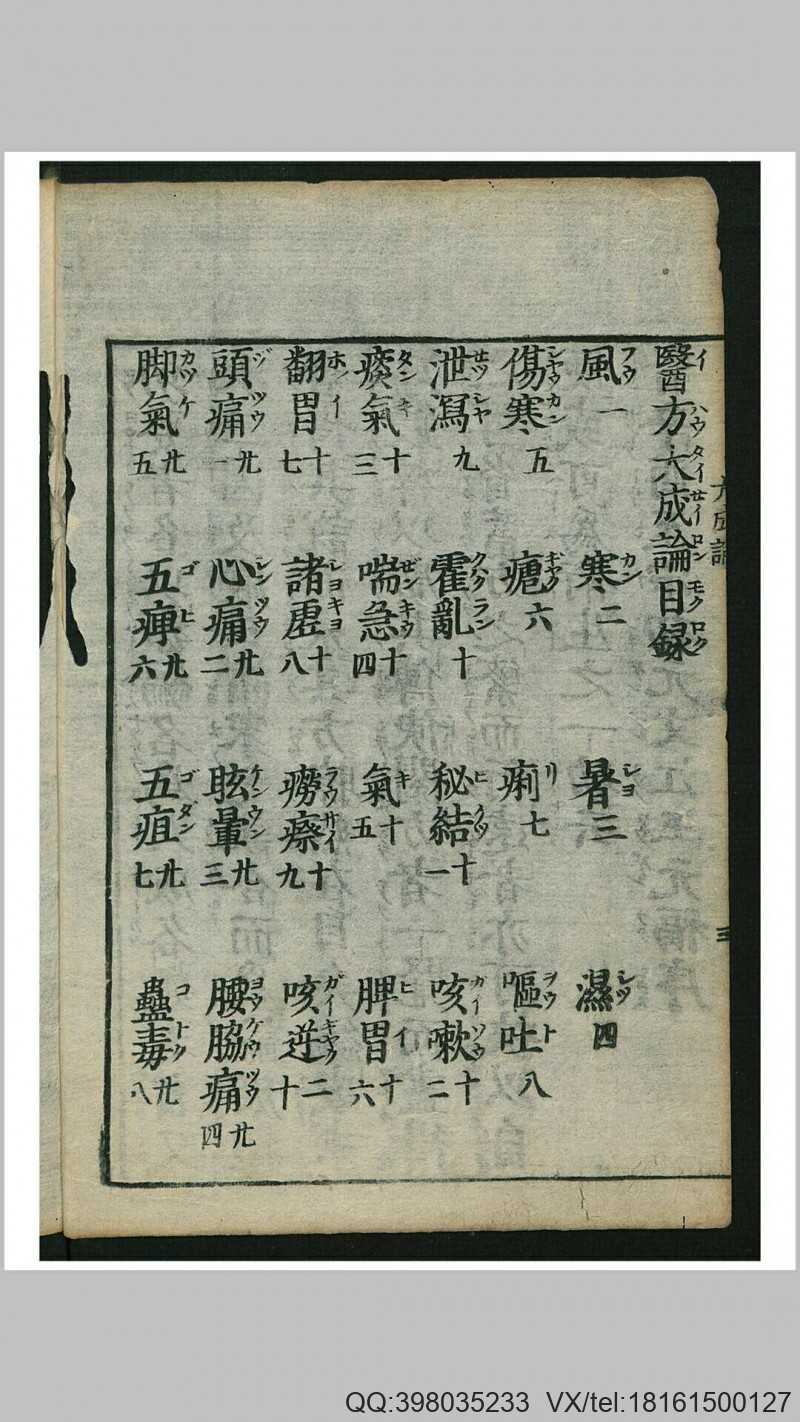 醫方大成論目録
風一 寒二 暑三 濕四
傷寒五 瘧六 痢七 嘔吐八
泄瀉九 霍亂十 秘結十一 咳嗽十二
痰氣十三 喘急十四 氣十五 脾胃十六
翻胃十七 諸虛十八 癆瘵十九 咳逆二十
頭痛廿一 心痛廿二 眩暈廿三 腰脇痛廿四
脚氣廿五 五痺廿六 五疸廿七 蠱毒廿八
QQ:398035233 VX/tel:18161500127